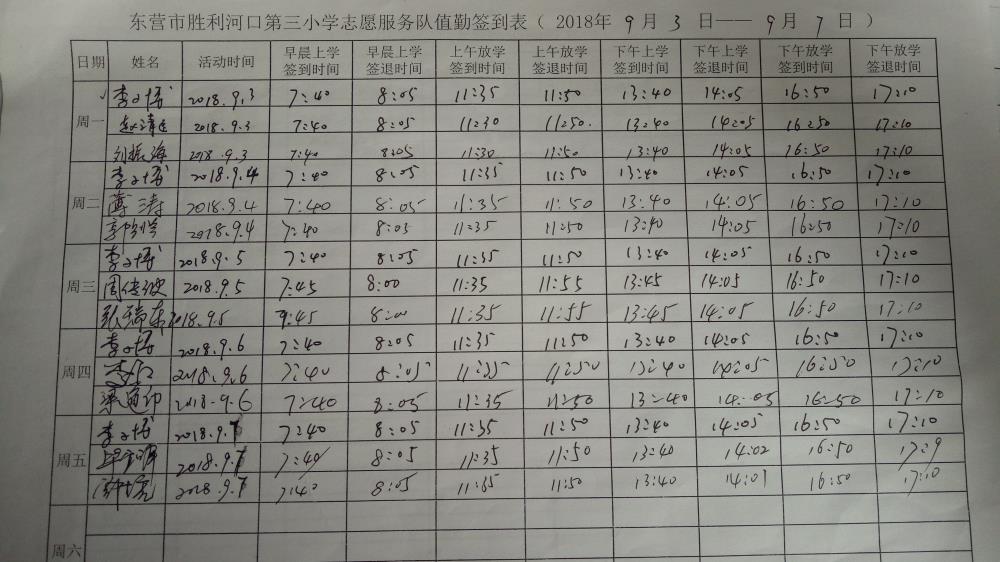 东营市胜利河口第三小学志愿服务队值勤签到表（ 2018年 9 月 3 日—— 9 月 7 日 ）
日期 姓名 活动时间 早晨上学签到时间 早晨上学签退时间 上午放学签到时间 上午放学签退时间 下午上学签到时间 下午上学签退时间 下午放学签到时间 下午放学签退时间
周一 2018.9.3 7:40 8:05 11:35 11:50 13:40 14:05 16:50 17:10
2018.9.3 7:40 8:05 11:30 11:50. 13:40 14:05 16:50 17:10
刘振海 2018.9.3 7:40 8:05 11:30 11:50 13:40 14:05 16:50 17:10
周二 2018.9.4 7:40 8:05 11:35 11:50 13:40 14:05 16:50 17:10
薄涛 2018.9.4 7:40 8:05 11:35 11:50 13:40 14:05 16:50 17:10
2018.9.4 7:40 8:05 11:35 11:50 13:40 14:05 16:50 17:10
周三 2018.9.5 7:40 8:05 11:35 11:50 13:40 14:05 16:50 17:10
2018.9.5 7:45 8:00 11:35 11:55 13:45 14:05 16:50 17:10
2018.9.5 7:45 8:00 11:35 11:55 13:45 14:05 16:50 17:10
周四 2018.9.6 7:40 8:05 11:35 11:50 13:40 14:05 16:50 17:10
2018.9.6 7:40 8:05 11:35 11:50 13:40 14:05 16:50 17:10
2018.9.6 7:40 8:05 11:35 11:50 13:40 14:05 16:50 17:10
周五 2018.9.7 7:40 8:05 11:35 11:50 13:40 14:05 16:50 17:10
2018.9.7 7:40 8:05 11:35 11:50 13:40 14:02 16:50 17:9
2018.9.7 7:40 8:05 11:35 11:50 13:40 14:01 16:50 17:10
周六